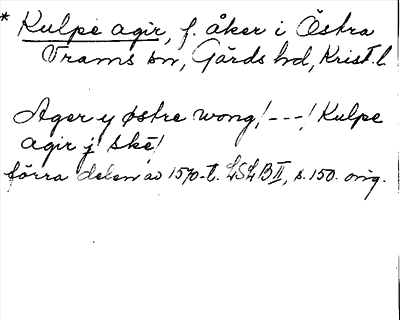 * Kulpe agir, f. åker i Östra
Vrams sn, Gärds hd, Krist. l
Ager y østre wong! --- ! Kulpe
agir j ske!
förra delen av 1570-t. LSLB II, s. 150. orig.